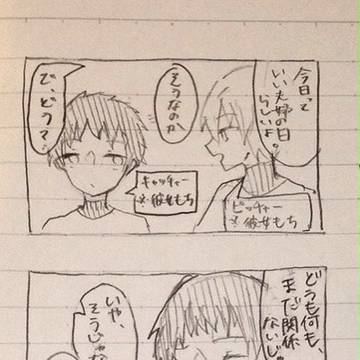 今日って
いい夫婦の日
らしいよ。
そうなのか
で、どうて?
ピッチャー
※彼女もち
キャッチャー
※彼女もち
どうも何も、
まだ関係
ないじ
いや、
そうじゃな